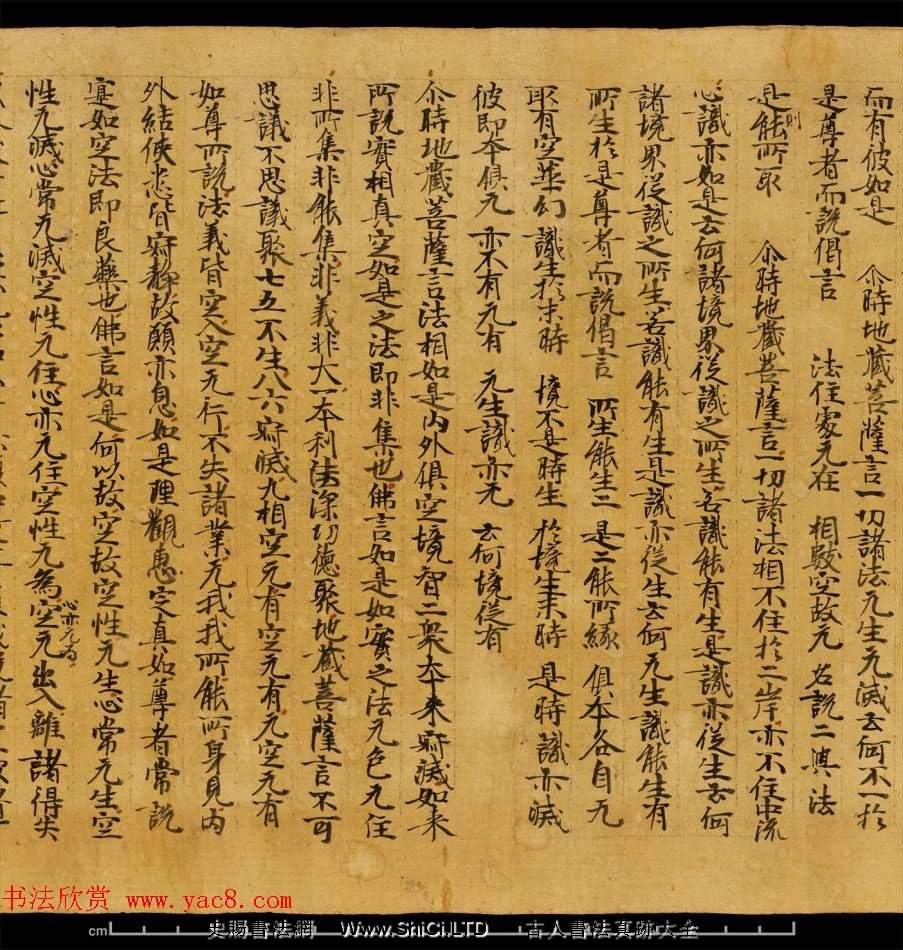 而有彼如是　尒時地藏菩薩言一切諸法无生无滅云何不一於
是尊者而說偈言　法住處无在　相數空故无　名說二與法
是則能所取　尒時地藏菩薩言一切諸法相不住於二岸亦不住中流
心識亦如是云何諸境界從識之所生若識能有生是識亦從生云何
諸境界從識之所生若識能有生是識亦從生云何无生識能生有
所生於是尊者而說偈言　所生能生二　是二能所緣　俱本各自无
取有空華幻　識生於未時　境不是時生　於境生未時　是時識亦滅
彼即本俱无　亦不有无有　无生識亦无　云何境從有
尒時地藏菩薩言法相如是内外俱空境智二衆本來寂滅如來
所說實相真空如是之法即非集也佛言如是如實之法无色无住
非所集非能集非義非大一本利法深功德聚地藏菩薩言不可
思議不思議聚七五不生八六寂滅九相空无有空无有无空无有
如尊所說法義皆空入空无行不失諸業无我我所能所身見内
外結使悉皆寂静故願亦息如是理觀惠定真如尊者常說
寔如空法即良藥也佛言如是何以故空故空性无生心常无生空
性无滅心常无滅空性无住心亦无住空性无為心亦无為空无出入離諸得失
书法欣赏 www.yac8.com
cm 史賜書法網 Www.ShiCi.LTD 古人書法真跡大全